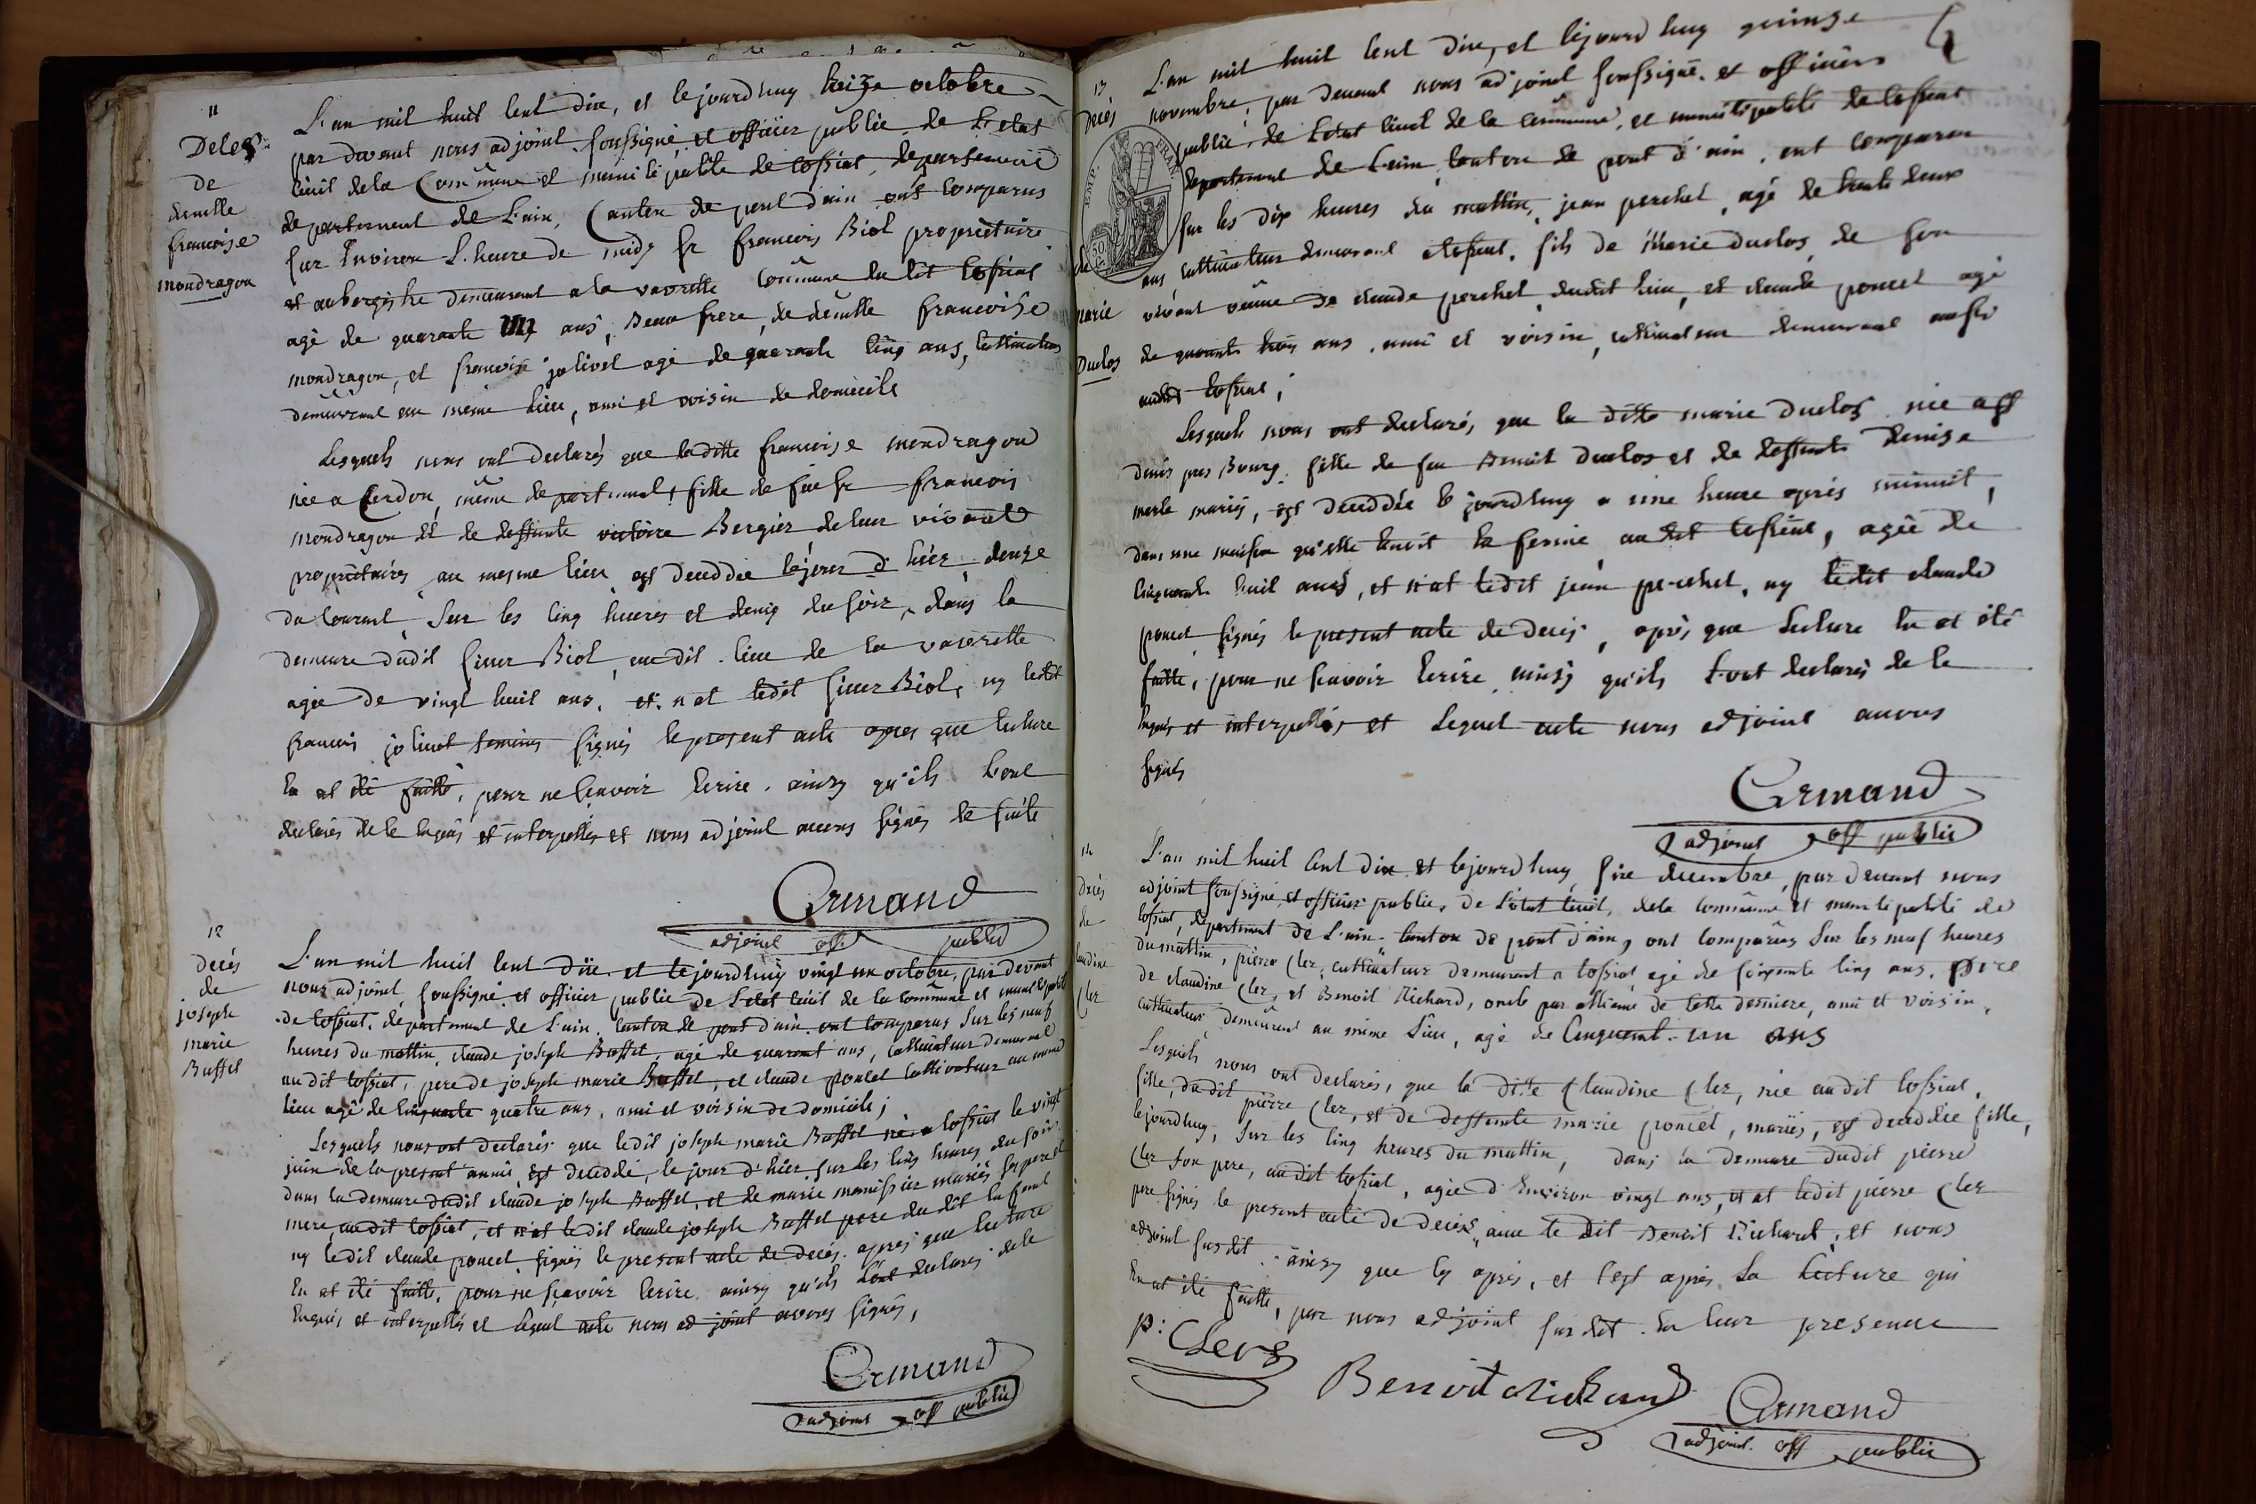 11
Deces
de
demelle
francoise
mondragon
L'an mil huit cent dix, et lejourdhuy treize octobre
par devant nous adjoint soussigné, et officier public de L'etat
civil dela Commune et municipalité de tossiat, departement
departement de L'ain, Canton de pont d'ain ont comparus
sur Environ L'heure de midy sr francois Biol propriètaire
et aubergiste demeurant a la vavrette commune du dit tossiat
agé de quarante un ans, Beau frere, de demelle francoise
mondragon, et francois jolivet agé de quarante cinq ans, cultivateur
demeurant au même lieu, ami et voisin de domicile
Lesquels nous ont declarés que laditte francoise mondragon
née a Cerdon, même departement, fille de feu sr francois
mondragon et de deffunte victoire Bergier de leur vivant
propriètaires au mesme lieu est deceddée lejour d'hier douze
du courant, sur les cinq heures et demy du soir, dans la
demeure dudit sieur Biol, audit lieu de la vavrette
agée de vingt huit ans, et n'at ledit sieur Biol, ny ledit
francois jolivet signés lepresent acte apres que lecture
En at été faitte, pour ne scavoir Ecrire, ainsy qu'ils L'ont
declarés de ce enquis et interpellés et nous adjoint avons signés de suite
Armand
adjoint off. public
12
decés
de
joseph
marie
Buffet
L'an mil huit cent dix, et lejourdhuy vingt un octobre, par devant
nous adjoint, soussigné et officier public de L'etat civil de la commune et municipalité
de tossiat, departement de L'ain, canton de pont d'ain, ont comparus sur les neuf
heures du mattin, claude joseph Buffet, agé de quarante ans, cultivateur demeurant
au dit tossiat, pere de joseph marie Buffet, et claude poncet cultivateur au même
lieu agé de cinquante quatre ans, ami et voisin de domicile;
Lesquels nous ont declarés que ledit joseph marie Buffet né a tossiat le vingt
juin de la present année, est deceddé, le jour d'hier sur les cinq heures du soir
dans la demeure dudit claude joseph Buffet, et de marie monissier mariés ses pere et
mere, audit tossiat, et n'at ledit claude joseph Buffet pere du dit
ny ledit claude poncet, signés le present acte de decés, apres que lecture
En at été faitte, pour ne scavoir Ecrire ainsy qu'ils L'ont declarés de ce
Enquis et interpellés et lequel acte nous adjoint avons signés,
Armand
adjoint off public
13
Decés
de
marie
Duclos
IMP. FRAN.
50
L'an mil huit cent dix, et lejourd huy quinze
novembre, par devant nous adjoint soussigné et officier
public de L'etat civil de la commune, et municipalité de tossiat
departement de L'ain, canton de pont d'ain, ont comparu
sur les dix heures du mattin, jean perchet, agé de trente deux
ans cultivateur demeurant a tossiat, fils de Marie duclos, de son
vivant veuve de claude perchet, dudit lieu, et claude poncet agé
de quarante trois ans, ami et voisin, cultivateur demeurant aussi
audit tossiat,
Lesquels nous ont declarés, que la ditte marie Duclos née a st
denis pres Bourg, fille de feu Benoit duclos et de deffunte denise
merle mariés, est deceddée le jourdhuy a une heure aprés minuit,
dans une maison qu'elle tenoit En ferme au dit tossiat, agée de
cinquante huit ans, et n'at ledit jean perchet, ny ledit claude
poncet signés le present acte de decés, aprés que Lecture En at été
faitte, pour ne scavoir Ecrire ainsy qu'ils L'ont declarés de ce
Enquis et interpellés et Lequel acte nous adjoint avons
signés
Armand
adjoint off public
14
Decés
de
claudine
Clez
L'an mil huit Cent dix et lejourdhuy six decembre, par devant nous
adjoint soussigné, et officier public, de L'etat Civil, dela commune et municipalité de
tossiat, departement de L'ain, Canton de pont d'ain, ont comparus sur les neuf heures
du mattin, pierre Clez, cultivateur demeurant a tossiat agé de soixante cinq ans, pere
de claudine Clez, et Benoit Richard, oncle par alliance de cette derniere, ami et voisin,
cultivateur demeurant au même Lieu, agé de Cinquante un ans
Lesquels nous ont declarés, que la ditte Claudine Clez, née audit tossiat,
fille, dudit pierre Clez, et de deffunte marie poncet, mariés, est deceddée fille,
lejourdhuy, sur les cinq heures du mattin, dans la demeure dudit pierre
Clez son pere, audit tossiat, agée d'Environ vingt ans, et at ledit pierre Clez
pere signés le present acte de decés, avec le dit Benoit Richard, et nous
adjoint susdit, ainsy que cy aprés, et c'est aprés La Lecture qui
En at été faitte, par nous adjoint susdit En leur presence
p: Clers
Benoit Richard
Armand
adjoint off public